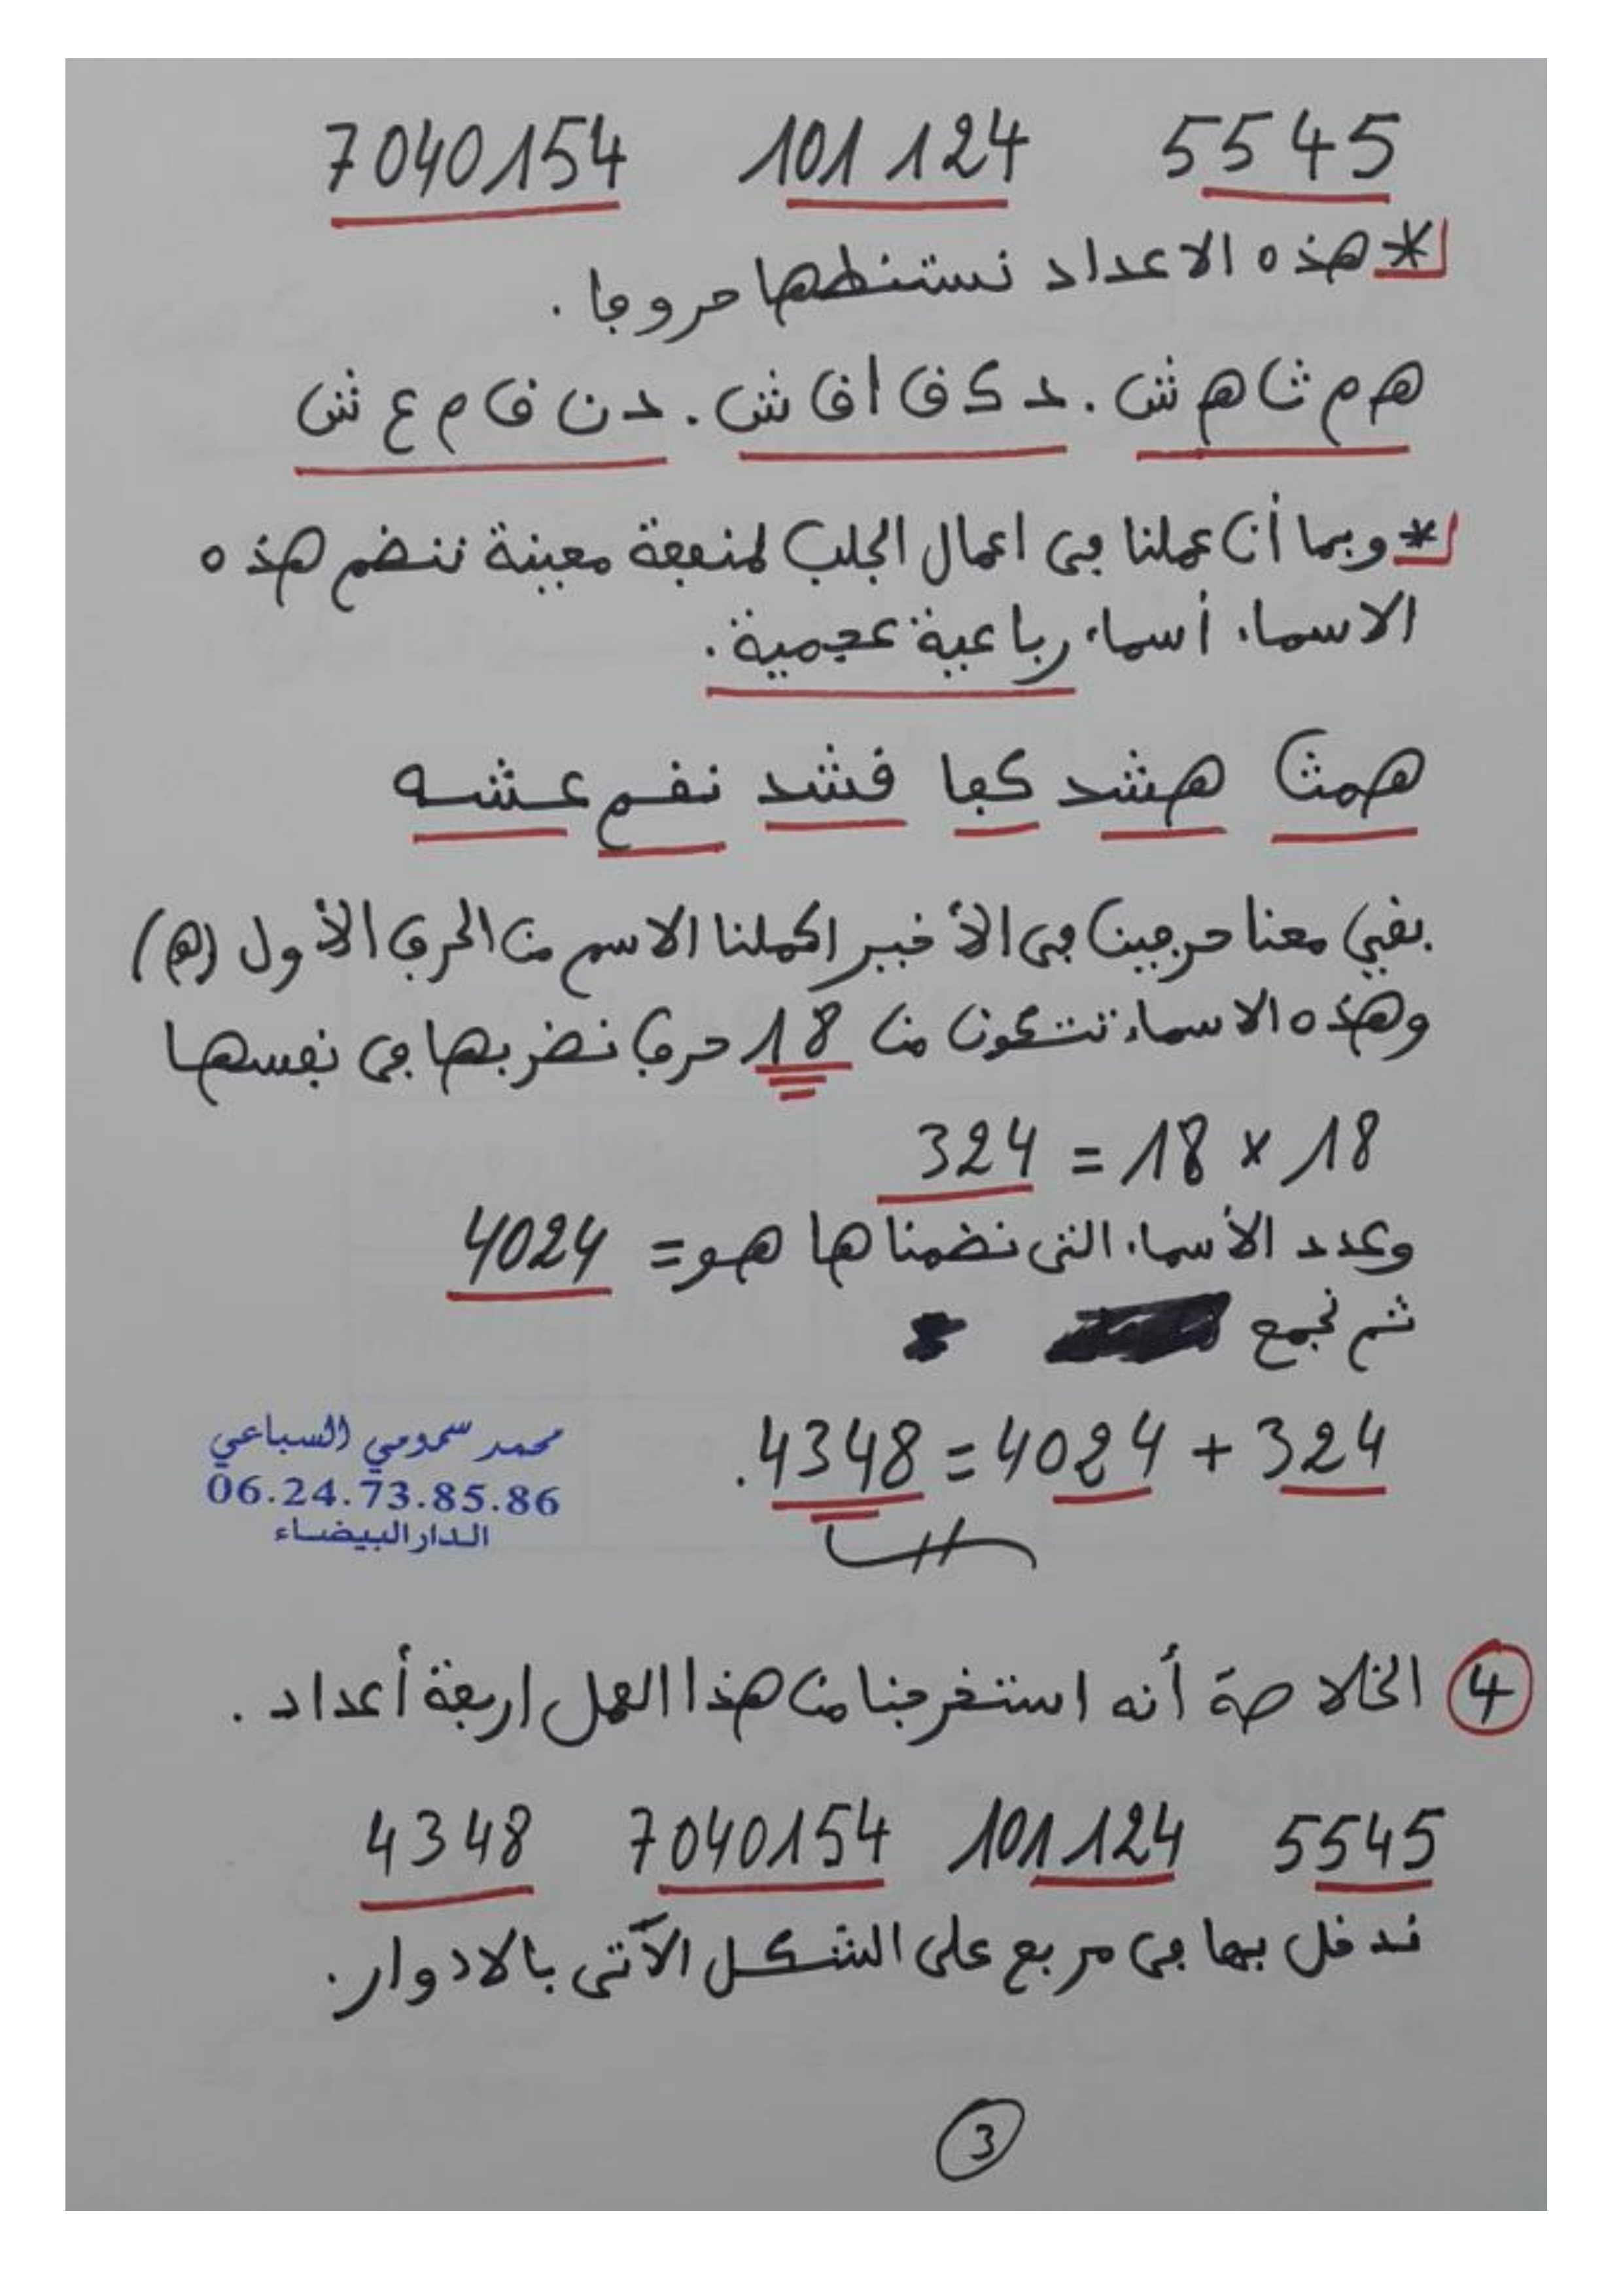 5545 101124 7040154
* هذه الاعداد نستنطقها حروفا .
هـ م ث ا هـ ش . د ك ق ا ق ش . د ن ق م ع ش
* وبما أن عملنا في اعمال الجلب لمنفعة معينة ننضم هذه
الاسماء أسماء رباعية عجمية .
همثا هشد كقا قشد نقم عشه
بقي معنا حرفين في الأخير اكملنا الاسم من الحرف الأول (هـ)
وهذه الاسماء تتكون من 18 حرف نضربها في نفسها
18 × 18 = 324
وعدد الأسماء التي نضمناها هو = 4024
ثم نجمع
324 + 4024 = 4348.
محمد سمومي السباعي
06.24.73.85.86
الدار البيضاء
4 الخلاصة أنه استخرجنا من هذا العمل اربعة أعداد .
5545 101124 7040154 4348
ندخل بها في مربع على الشكل الآتي بالادوار.
3